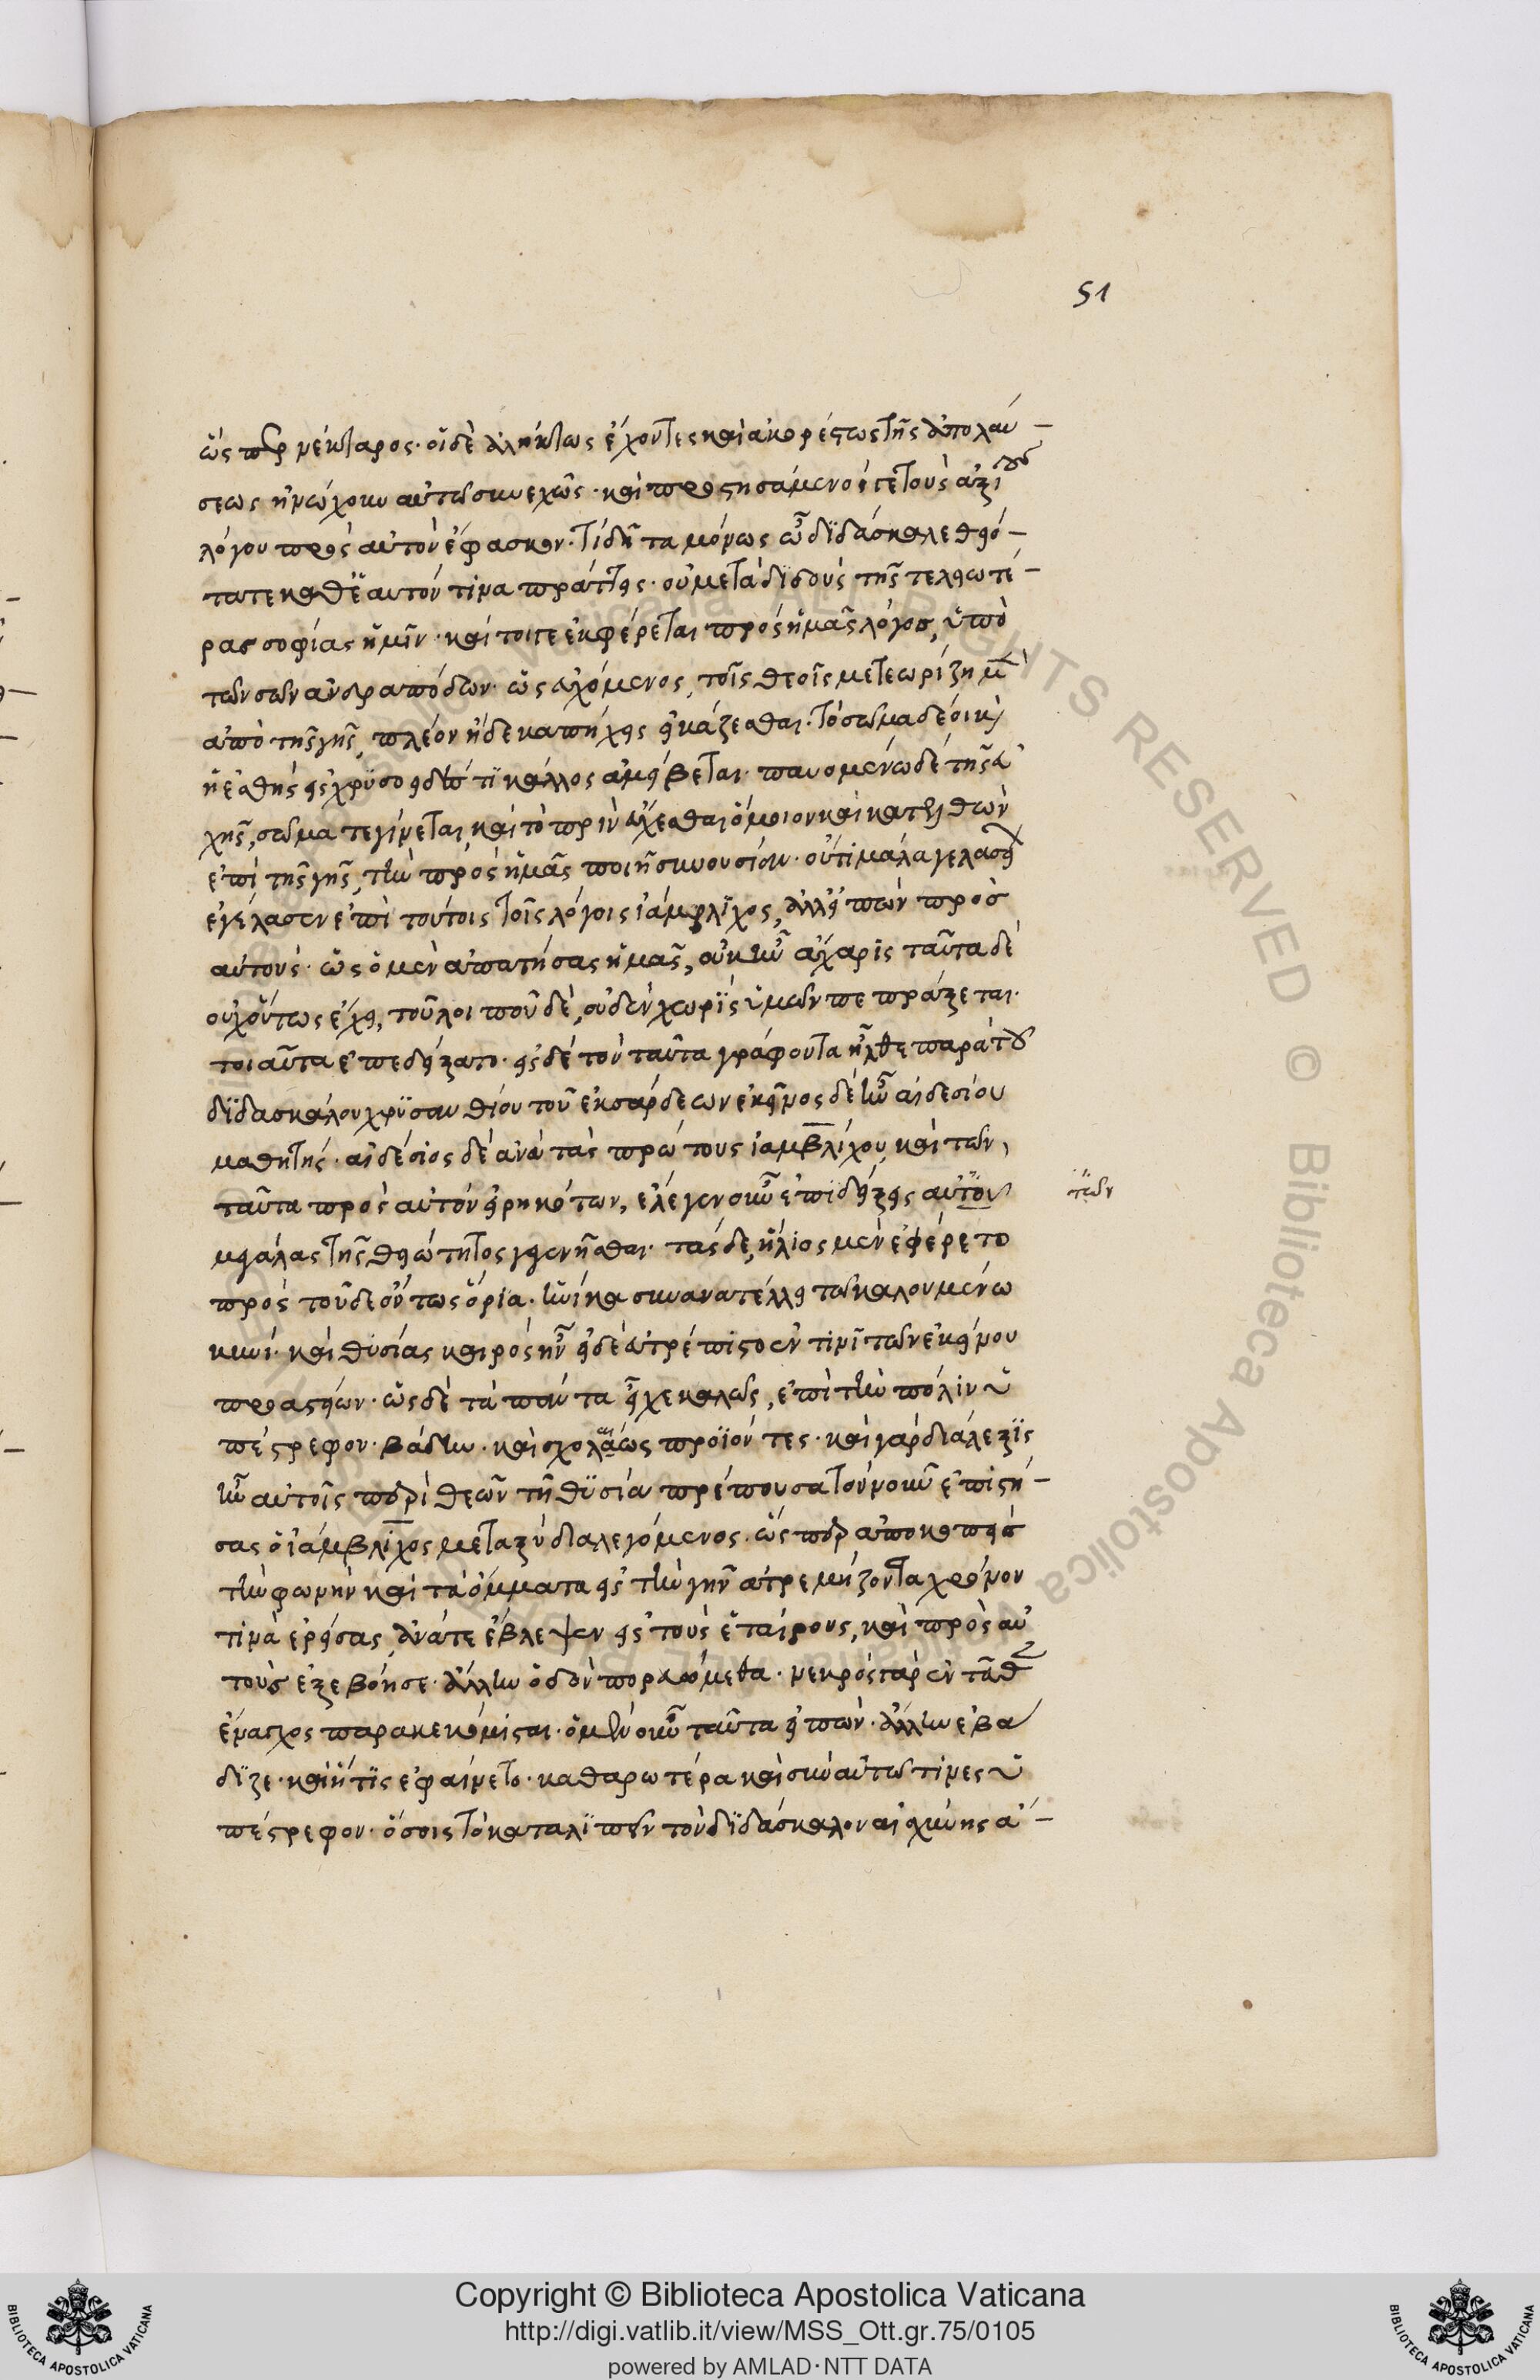 51
ὥσπερ νέκταρος· οἱ δὲ ἀλήκτως ἔχοντες καὶ ἀκορέστως τῆς ἀπολαύ-
σεως ἠνώχλουν αὐτῷ συνεχῶς· καὶ προστησάμενοί γε τοὺς ἀξίους
λόγου πρὸς αὐτὸν ἔφασκον· τί δῆτα μόνως ὦ διδάσκαλε θειό-
τατε καθ' ἑαυτόν τινα πράττεις· οὐ μεταδιδοὺς τῆς τελεωτέ-
ρας σοφίας ἡμῖν· καί τοι γε ἐκφέρεται πρὸς ἡμᾶς λόγος, ὑπὸ
τῶν σῶν ἀνδραπόδων· ὡς εὐχόμενος τοῖς θεοῖς μετεωρίζῃ μὲν
ἀπὸ τῆς γῆς, πλέον ἢ δέκα πήχεις εἰκάζεσθαι· τὸ σῶμα δέ σοι καὶ
ἡ ἐσθὴς εἰς χρυσοειδές τι κάλλος ἀμείβεται· παυομένῳ δὲ τῆς εὐ
χῆς, σῶμά τε γίνεται, καὶ τὸ πρὶν εὔχεσθαι ὅμοιον καὶ κατελθὼν
ἐπὶ τῆς γῆς, τὴν πρὸς ἡμᾶς ποιῇ συνουσίαν· οὔτι μάλα γελασείων
ἐγέλασεν ἐπὶ τούτοις τοῖς λόγοις ἰάμβλιχος, ἀλλ' εἰπὼν πρὸς
αὐτούς· ὡς ὁ μὲν ἀπατήσας ἡμᾶς, οὐκ ἦν ἄχαρις ταῦτα δὲ
οὐχ οὕτως ἔχει, τοῦ λοιποῦ δὲ, οὐδὲν χωρὶς ὑμῶν πεπράξεται·
τοιαῦτα ἐπεδείξατο· εἰς δὲ τὸν ταῦτα γράφοντα ἦλθε παρὰ τοῦ
διδασκάλου χρυσανθίου τοῦ ἐκ σάρδεων ἐκεῖνος δὲ ἦν αἰδεσίου
μαθητής· αἰδέσιος δὲ ἀνὰ τὰς πρώτους ἰαμβλίχου, καὶ τῶν,
ταῦτα πρὸς αὐτὸν εἰρηκότων, ἔλεγεν οὖν ἐπιδείξεις αὐτὸν
τῶν
μεγάλας τῆς θειότητος γεγενῆσθαι· τάσδε, ἥλιος μὲν ἐφέρετο
πρὸς τοῦ λέοντος ὅρια· ἡνίκα συνανατέλλει τῷ καλουμένῳ
κυνί· καὶ θυσίας καιρὸς ἦν ἡ δὲ εὐτρέπιστο ἔν τινι τῶν ἐκείνου
προαστείων· ὡς δὲ τὰ πάντα εἶχε καλῶς, ἐπὶ τὴν πόλιν ὑ
πέστρεφον· βάδην· καὶ σχολαίως προϊόντες· καὶ γὰρ διάλεξις
ἦν αὐτοῖς περὶ θεῶν τῇ θυσίᾳ πρέπουσα τὸν νοῦν ἐπιστή-
σας ὁ ἰάμβλιχος μεταξὺ διαλεγόμενος· ὥσπερ ἀποκοπεὶς
τὴν φωνὴν καὶ τὰ ὄμματα εἰς τὴν γῆν ἀτρεμίζοντα χρόνον
τινὰ ἐρείσας, ἀνά τε ἔβλεψεν εἰς τοὺς ἑταίρους, καὶ πρὸς αὐ
τοὺς ἐξεβόησε· ἄλλην ὁδὸν πορευώμεθα· νεκρὸς γὰρ ἐνταῦθα
ἔναγχος παρακεκόμισται· ὁ μὲν οὖν ταῦτα εἰπών· ἄλλην ἐβά
διζε· καὶ ἥτις ἐφαίνετο· καθαρωτέρα καὶ σὺν αὐτῷ τινες ὑ
πέστρεφον· ὅσοις τὸ καταλιπεῖν τὸν διδάσκαλον αἰσχύνης ἄ-
Copyright © Biblioteca Apostolica Vaticana
http://digi.vatlib.it/view/MSS_Ott.gr.75/0105
powered by AMLAD·NTT DATA